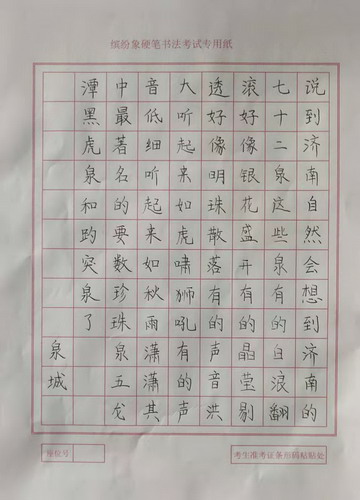 缤纷象硬笔书法考试专用纸
说到济南自然会想到济南的
七十二泉这些泉有的白浪翻
滚好像银花盛开有的晶莹剔
透好像明珠散落有的声音洪
大听起来如虎啸狮吼有的声
音低细听起来如秋雨潇潇其
中最著名的要数珍珠泉五龙
潭黑虎泉和趵突泉了
泉城
座位号
考生准考证条形码粘贴处